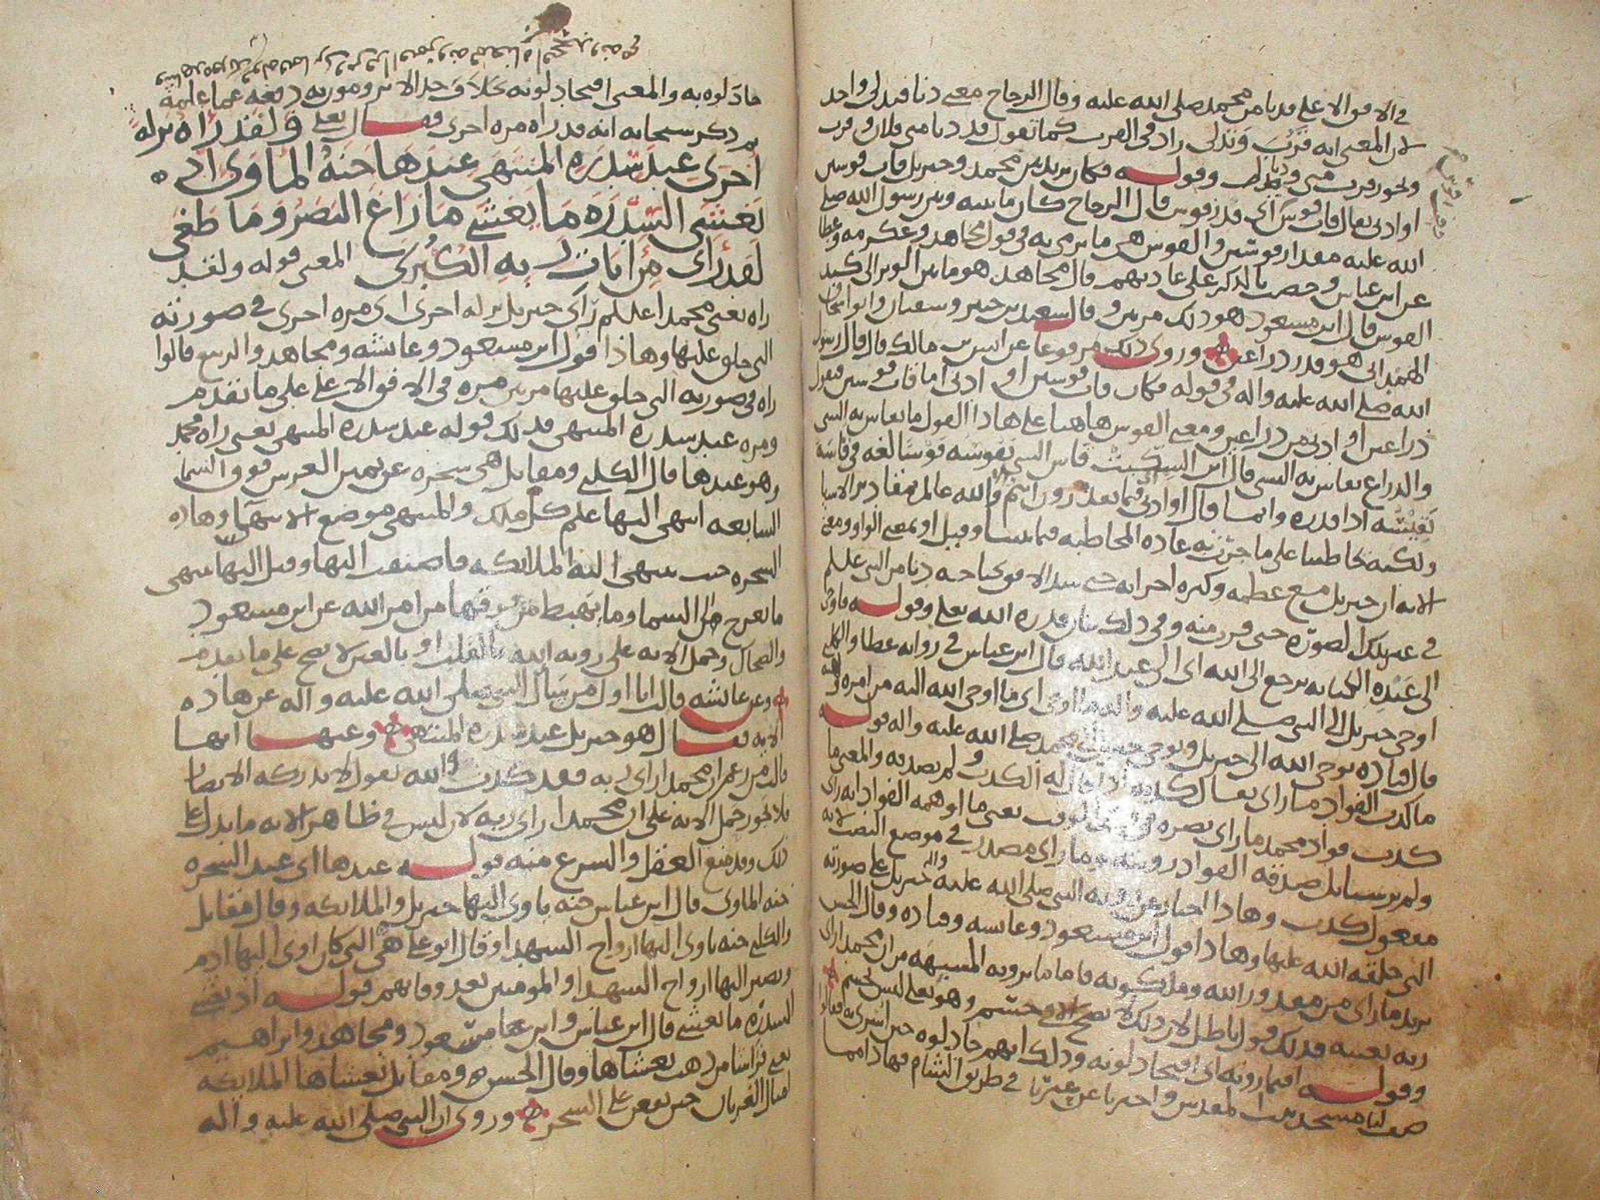 في الافق الاعلى قد دنا من محمد صلى الله عليه وقال الزجاج معنى دنا فتدلى واحد
لان المعنى انه قرب وتدلى زاد في القرب كما تقول قد دنا مني فلان وقرب
ولو قلت قرب مني ودنا وقوله فكان يريد بين محمد وجبريل قاب قوسين
او ادنى يقال قاب قوس اي قدر قوس قال الزجاج كان ما بينه وبين رسول الله صلى
الله عليه مقدار قوسين والقوس هي ما يرمى به في قول مجاهد وعكرمه وعطا
عن ابن عباس وخصت بالذكر على عادتهم قال مجاهد هو ما بين الوتر الى كبد
القوس قال ابن مسعود هو ذلك مرتين وقال سعيد بن جبير وسفيان وابو اسحاق
الهمداني هو قدر ذراعين وروى ذلك مرفوعا عن انس بن مالك قال قال رسول
الله صلى الله عليه واله في قوله فكان قاب قوسين او ادنى اما قاب قوسين فقدر
ذراعين او ادنى من ذراعين ومعنى القوس هاهنا على هاذا القول ما يقاس به الشي
والذراع يقاس به الشي قال ابن السكيت قاس الشي يقوسه قوسا لغة في قاسه
يقيسه اذا قدره وانما قال او ادنى فيما بعد والله عالم بمقادير الاشيا
ولكنه يخاطبنا على ما جرت به عادة المخاطبه فيما بيننا وقيل او بمعنى الواو ومعنى
الايه ان جبريل مع عظمه وكثرة اجزايه حتى سد الافق بجناحه دنا من النبي عليلم
في غير تلك الصورة حتى قرب منه وفي ذلك بيان قدرة الله تعلى وقوله فاوحى
الى عبده الكنايه ترجع الى الله اي الى عبد الله قال ابن عباس في رواية عطا والكلبي
اوحى جبريل الى النبي صلى الله عليه ما اوحى اي ما اوحى الله اليه من امره
قال قتاده يوحي الله الى جبريل ويوحي جبريل الى محمد صلى الله عليه واله قوله
ما كذب الفواد ما راى يقال كذبه اذا قال له الكذب ولم يصدقه والمعنى ما
كذب فواد محمد ما راى بصره يعني ما اوهمه الفواد انه راى
ولم ير بل صدقه الفواد رويته وما راى مصدر في موضع النصب لانه
مفعول كذب وهاذا اخبار عن روية النبي صلى الله عليه واله جبريل على صورته
التي خلقه الله عليها وهاذا قول ابن مسعود وعايشه وقتاده وقال الحسن
يريد ما راى من مقدور الله وملكوته فاما ما يرويه المشبهه من ان محمدا راى
ربه بعينه فذلك قول باطل لان ذلك لا يصح الا في جسم وهو تعلى ليس بجسم
وقوله افتمارونه اي افتجادلونه وذلك انهم جادلوه حين اسري به فقالوا
صف لنا مسجد بيت المقدس واخبرنا عن عيرنا في طريق الشام فهاذا مما
جادلوه به والمعنى افتجادلونه
ثم ذكر سبحانه انه قد راه مره اخرى فقال تعلى ولقد راه نزلة
اخرى عند سدرة المنتهى عندها جنة الماوى اذ
يغشى السدرة ما يغشى ما زاغ البصر وما طغى
لقد راى من ايات ربه الكبرى المعنى قوله ولقد
راه يعني محمدا عليلم راى جبريل نزلة اخرى اي مره اخرى في صورته
التي خلق عليها وهاذا قول ابن مسعود وعايشه ومجاهد والربيع قالوا
راه في صورته التي خلق عليها مرتين مره في الافق الاعلى على ما تقدم
ومره عند سدرة المنتهى فذلك قوله عند سدرة المنتهى يعني راه محمد
وهو عندها قال الكلبي ومقاتل هي شجره عن يمين العرش فوق السما
السابعه انتهى اليها علم كل ملك والمنتهى موضع الانتها وهاذه
الشجره حيث ينتهى اليها الملائكه فاضيفت اليها وقيل اليها ينتهى
ما يعرج الى السما وما يهبط من فوقها من امر الله عن ابن مسعود
والضحاك وحمل الايه على روية الله بالقلب او بالعين لا يصح على ما تقدم
وعن عايشه قالت انا اول من سال النبي صلى الله عليه واله عن هاذه
الايه فقال هو جبريل عند سدرة المنتهى وعنها انها
قالت من زعم ان محمدا راى ربه فقد كذب والله يقول لا تدركه الابصار
فلا يجوز حمل الايه على ان محمدا راى ربه لان ليس في ظاهر الايه ما يدل على
ذلك وقد منع العقل والشرع منه قوله عندها اي عند الشجره
جنة الماوى قال ابن عباس جنه ياوي اليها جبريل والملائكه وقال مقاتل
والكلبي جنه تاوي اليها ارواح الشهدا وقال ابو علي هي التي كان اوى اليها ادم
وتصير اليها ارواح الشهدا والمومنين بعد وفاتهم قوله اذ يغشى
السدرة ما يغشى قال ابن عباس وابن مسعود ومجاهد وابراهيم
يعني فراشا من ذهب يغشاها وقال الحسن ومقاتل تغشاها الملائكه
امثال الغربان حين يقعن على الشجر وروي ان النبي صلى الله عليه واله